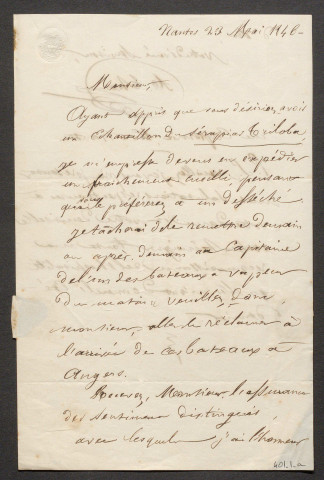 Nantes 23 Mai 1840
Monsieur,
Ayant appris que vous désiriez avoir
un Echantillon de Serapias triloba,
je m'empresse de vous en expédier
un fraichement cueilli, pensant
que vous le préférerez à un desséché
je tacherai de le remettre demain
ou après demain au Capitaine
de l'un des bateaux à vapeur
du matin, veuillez donc,
monsieur, aller le réclamer à
l'arrivée de ces bateaux à
Angers.
Recevez, Monsieur, l'assurance
des sentimens distingués
avec lesquels j'ai l'honneur
401.1.a